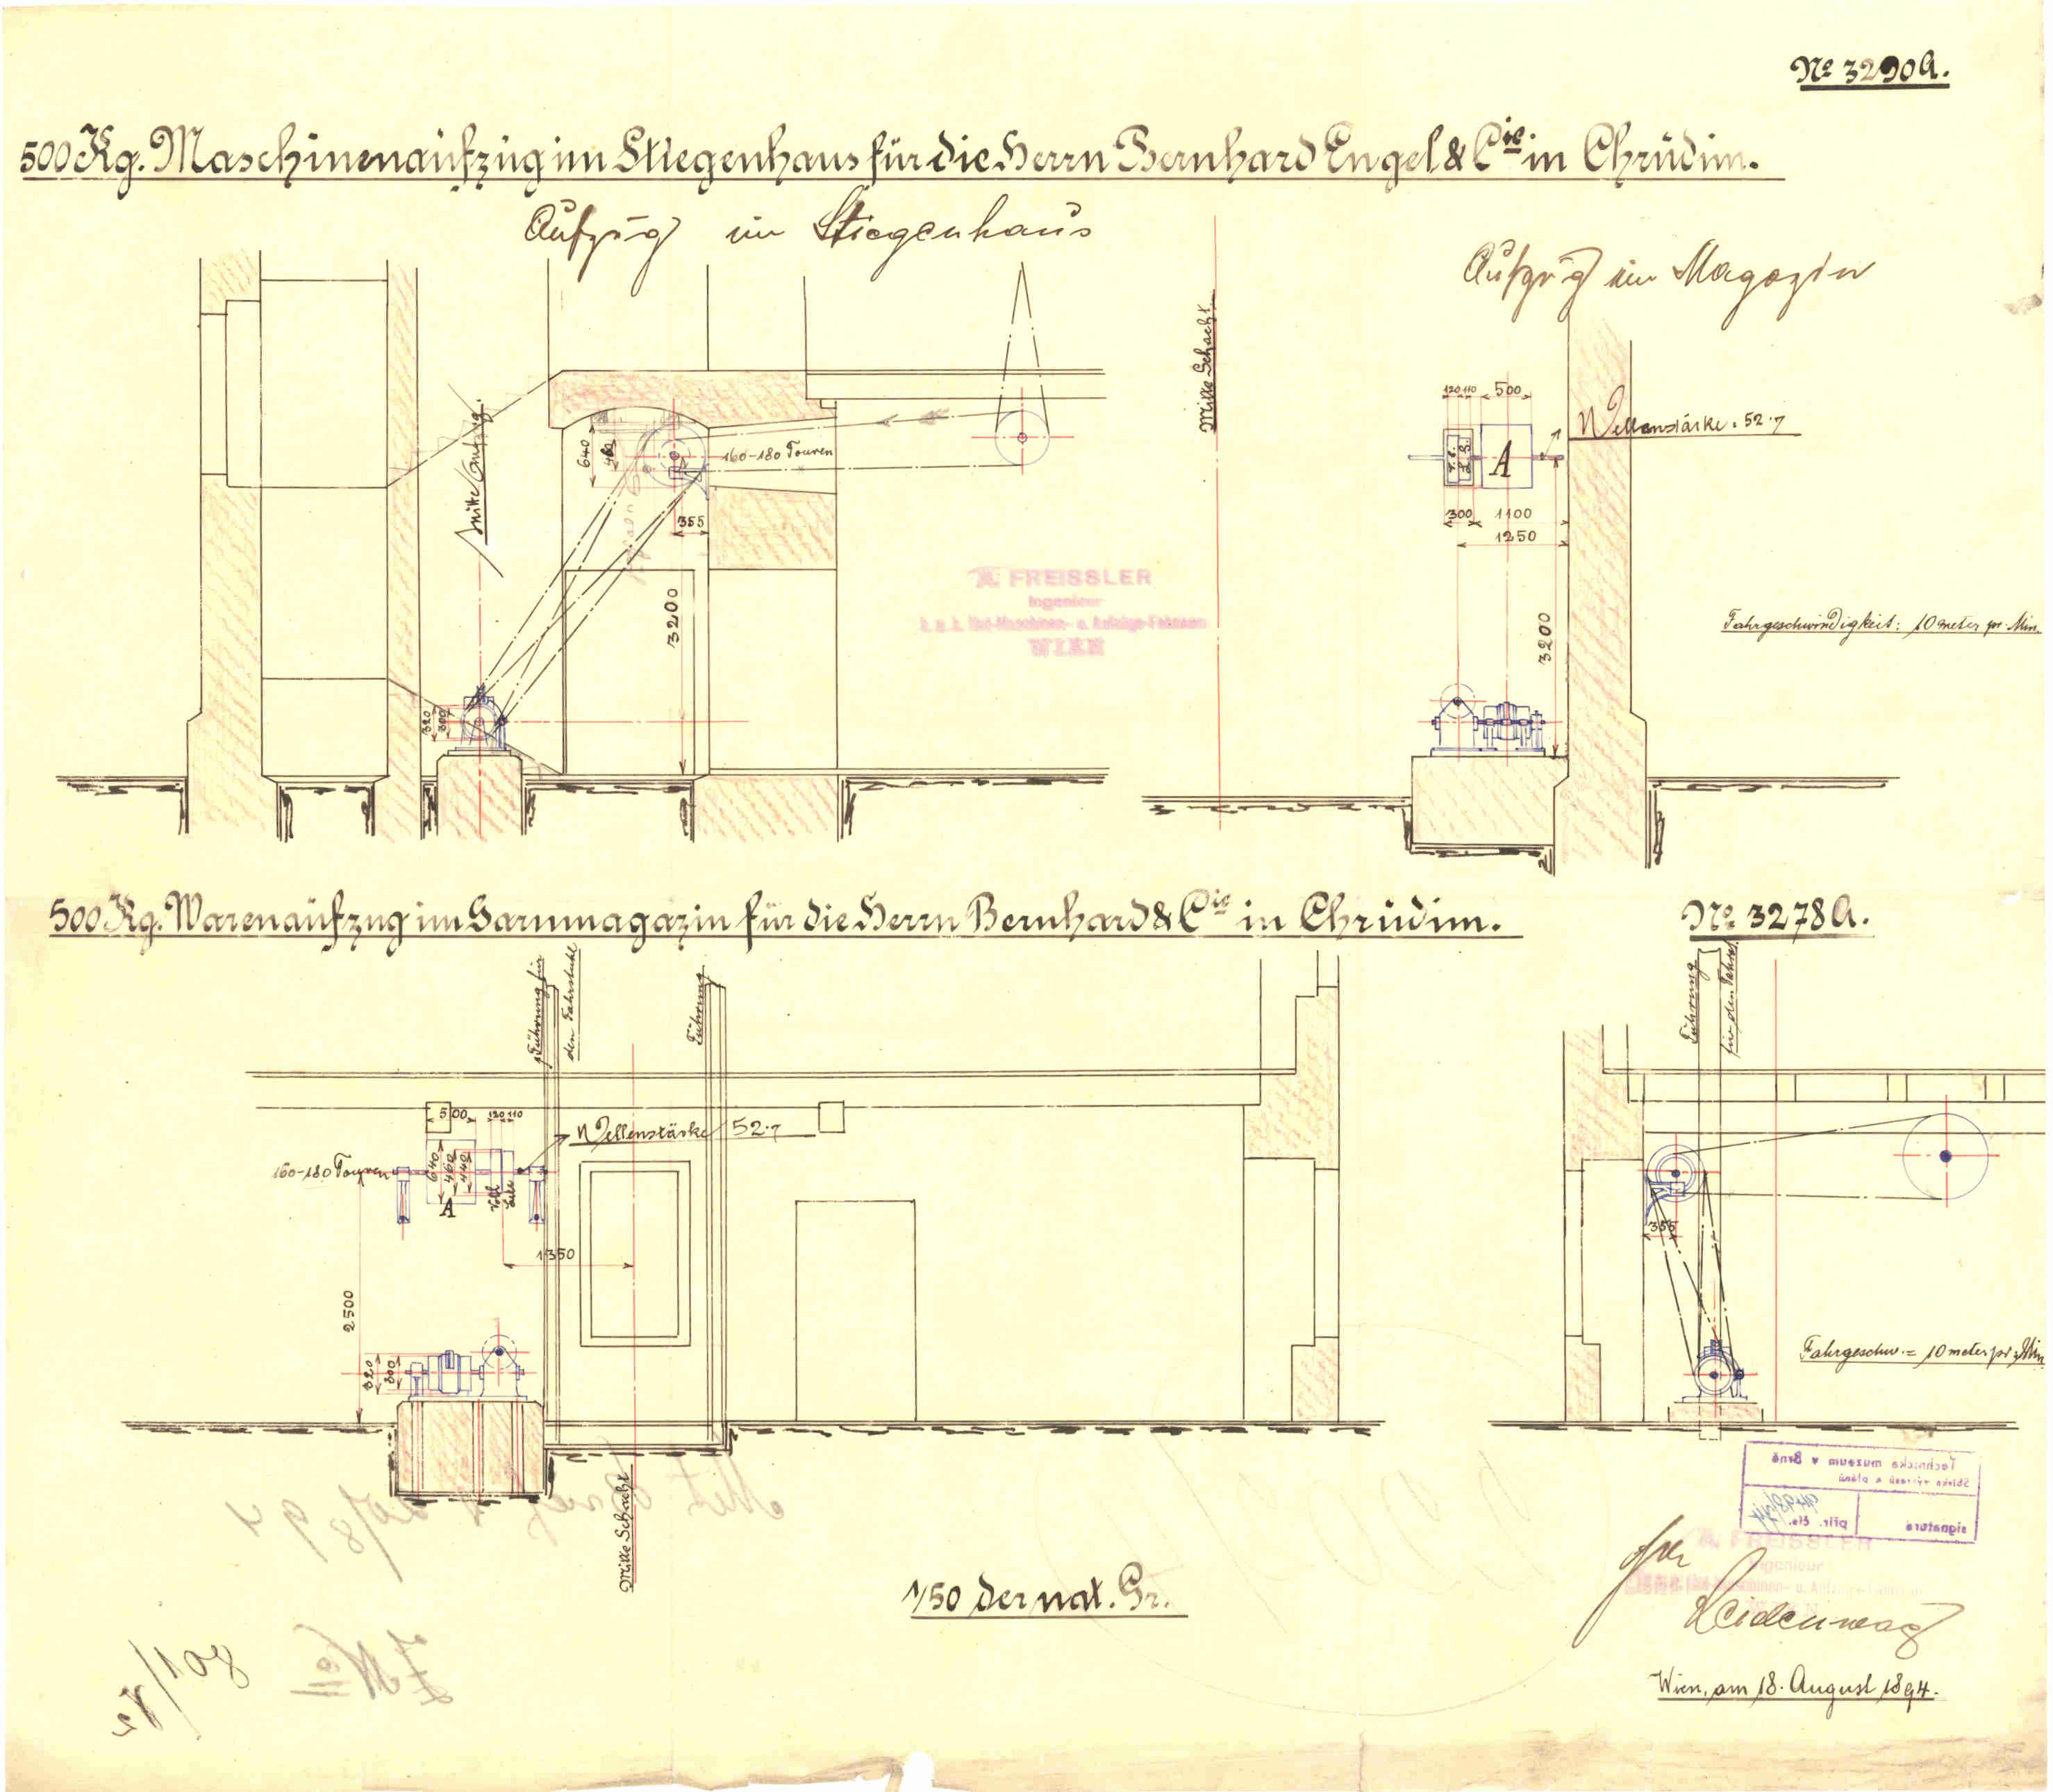 No 3290A.
500 Kg. Maschinenaufzug im Stiegenhaus für die Herrn Bernhard Engel & Cie in Chrudim.
Aufzug im Stiegenhaus
Aufzug im Magazin
Mitte Schacht.
120 110 500
Wellenstärke = 52.7
A
640
460
160-180 Touren
355
300 1100
1250
3200
3200
320
300
A. FREISSLER
Ingenieur
WIEN
Fahrgeschwindigkeit: 10 meter pr. Min.
500 Kg. Warenaufzug im Garnmagazin für die Herrn Bernhard & Cie in Chrudim.
No 3278A.
Führung für
den Fahrstuhl
Führung
Führung
für den Fahrst.
500 120 110
Wellenstärke 52.7
160-180 Touren
640
460
440
Voll
Leer
A
1350
2500
320
300
355
Fahrgeschw. = 10 meter pr. Min
Mitte Schacht
Technické muzeum v Brně
Sbírka výkresů a plánů
signatura
přír. čís.
A. FREISSLER
Ingenieur
1/50 der nat. Gr.
Wien, am 18. August 1894.